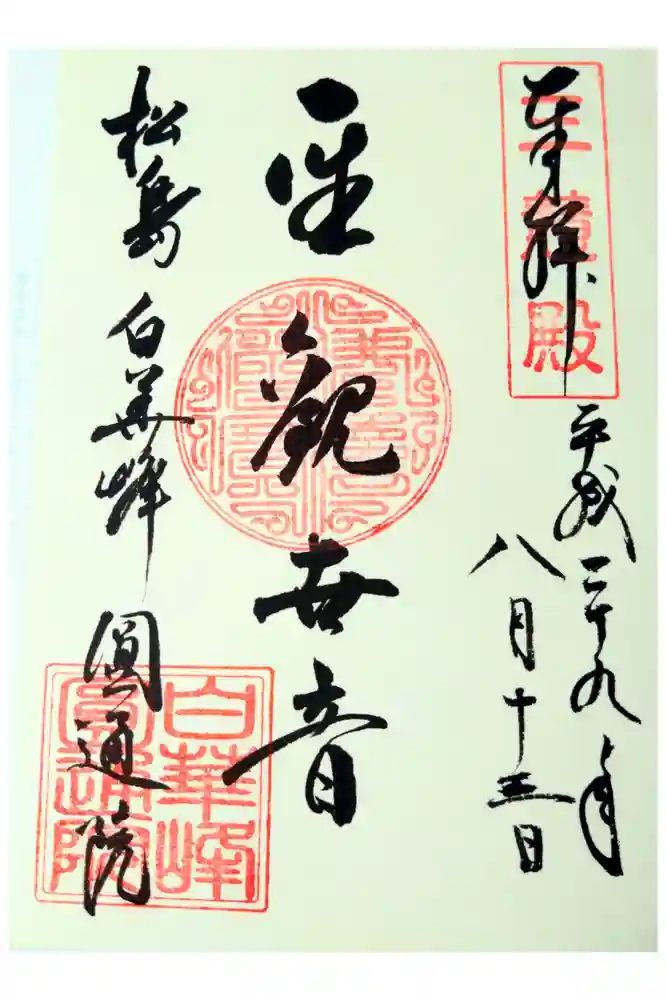 奉拝
三慧殿
平成二十九年
八月十三日
聖観世音
松島 白華峰 圓通院
白華峰
圓通院